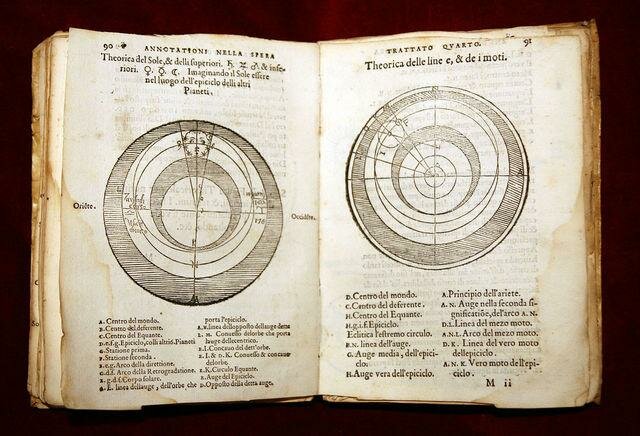 90
ANNOTATIONI NELLA SPERA
Theorica del Sole, & delli superiori. ♄ ♃ ♂ & infe-
riori. ♀ ☿ ☾. Imaginando il Sole essere
nel luogo dell'epiciclo delli altri
Pianeti.
Oriẽte.
Occidẽte.
A. Centro del mondo.
B. Centro del deferente.
C. Centro del Equante.
D. e.f.g. Epiciclo, colli altri s. Pianeti
G. Statione prima.
F. Statione seconda.
E. e.g. Arco della direttione.
G. d.f. Arco della Retrogradatione.
E. g.d.f. Corpo solare.
L. linea dell'auge, dell'orbe che
porta l'epiciclo.
A. linea dell'opposto dell'auge
L. M. Conuesso delorbe che porta
lauge dell'eccentrico.
Concauo del dett'orbe.
& D. K. Conuesso & concauo
delorbe.
Circulo Equante.
Auge del Epiciclo.
D. Opposto della detta auge.
TRATTATO QVARTO.
91
Theorica delle line e, & de i moti.
D. Centro del mondo.
C. Centro del deferente.
H. Centro del Equante.
H.g.i.f. Epiciclo.
Eclitica l'estremo circulo.
B.N. linea dell'auge.
G. Auge media, dell'epici-
clo.
H. Auge vera dell'epiciclo.
A. Principio dell'ariete.
A. N. Auge nella seconda si-
gnificatiõe, del'arco A. N.
D.L. Linea del mezo moto.
A.N.L. Arco del mezo moto.
D. K. Linea del vero moto
dellepiciclo.
A. N. K. Vero moto dell'epi-
ciclo.
M ii